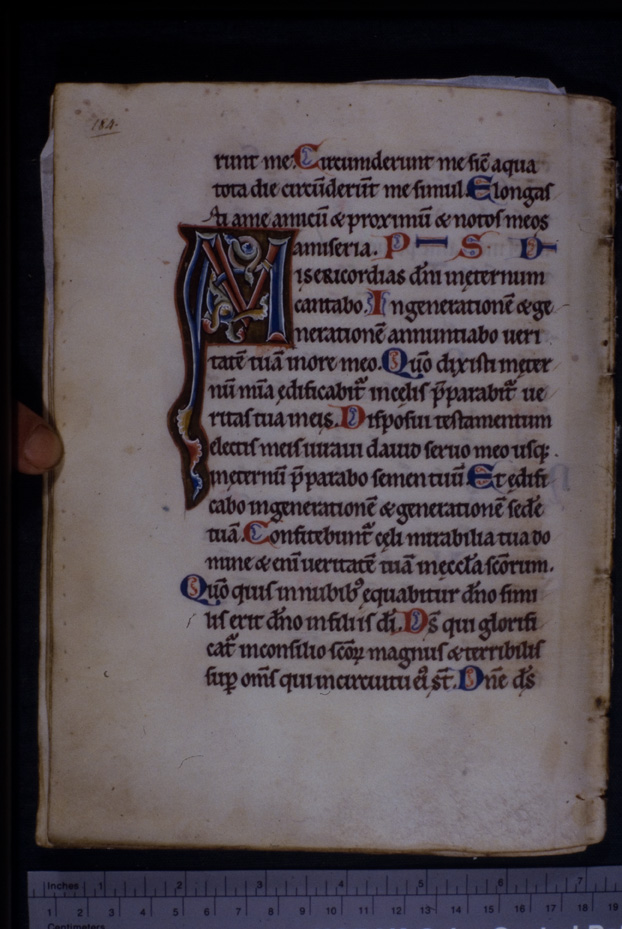 184.
runt me. Circumderunt me sic̄ aqua
tota die circūderūt me simul. Elongas
ti a me amicū & proximū & notos meos
a miseria. P S D
Misericordias dn̄i in ęternum
cantabo. In generationē & ge
nerationē annuntiabo veri
tatē tuā in ore meo. Qūo dixisti in ęter
nū mīa ędificabit̄ in cęlis p̄parabit̄ ve
ritas tua in eis. Disposui testamentum
electis meis iuravi david servo meo usq;
in ęternū p̄parabo semen tuū Et ędifi
cabo in generationē & generationē sedē
tuā. Confitebunt̄ cęli mirabilia tua do
mine & enī veritatē tuā in ęccl̄a sc̄orum.
Qūo quis in nubibꝰ equabitur dn̄o simi
lis erit dn̄o in filiis dī. Ds̄ qui glorifi
cat̄ in consilio sc̄oꝝ magnus & terribilis
sup̄ om̄s qui in circuitu eiꝰ st̄. Dn̄e ds̄
Inches 1 2 3 4 5 6 7
1 2 3 4 5 6 7 8 9 10 11 12 13 14 15 16 17 18 19
Centimeters